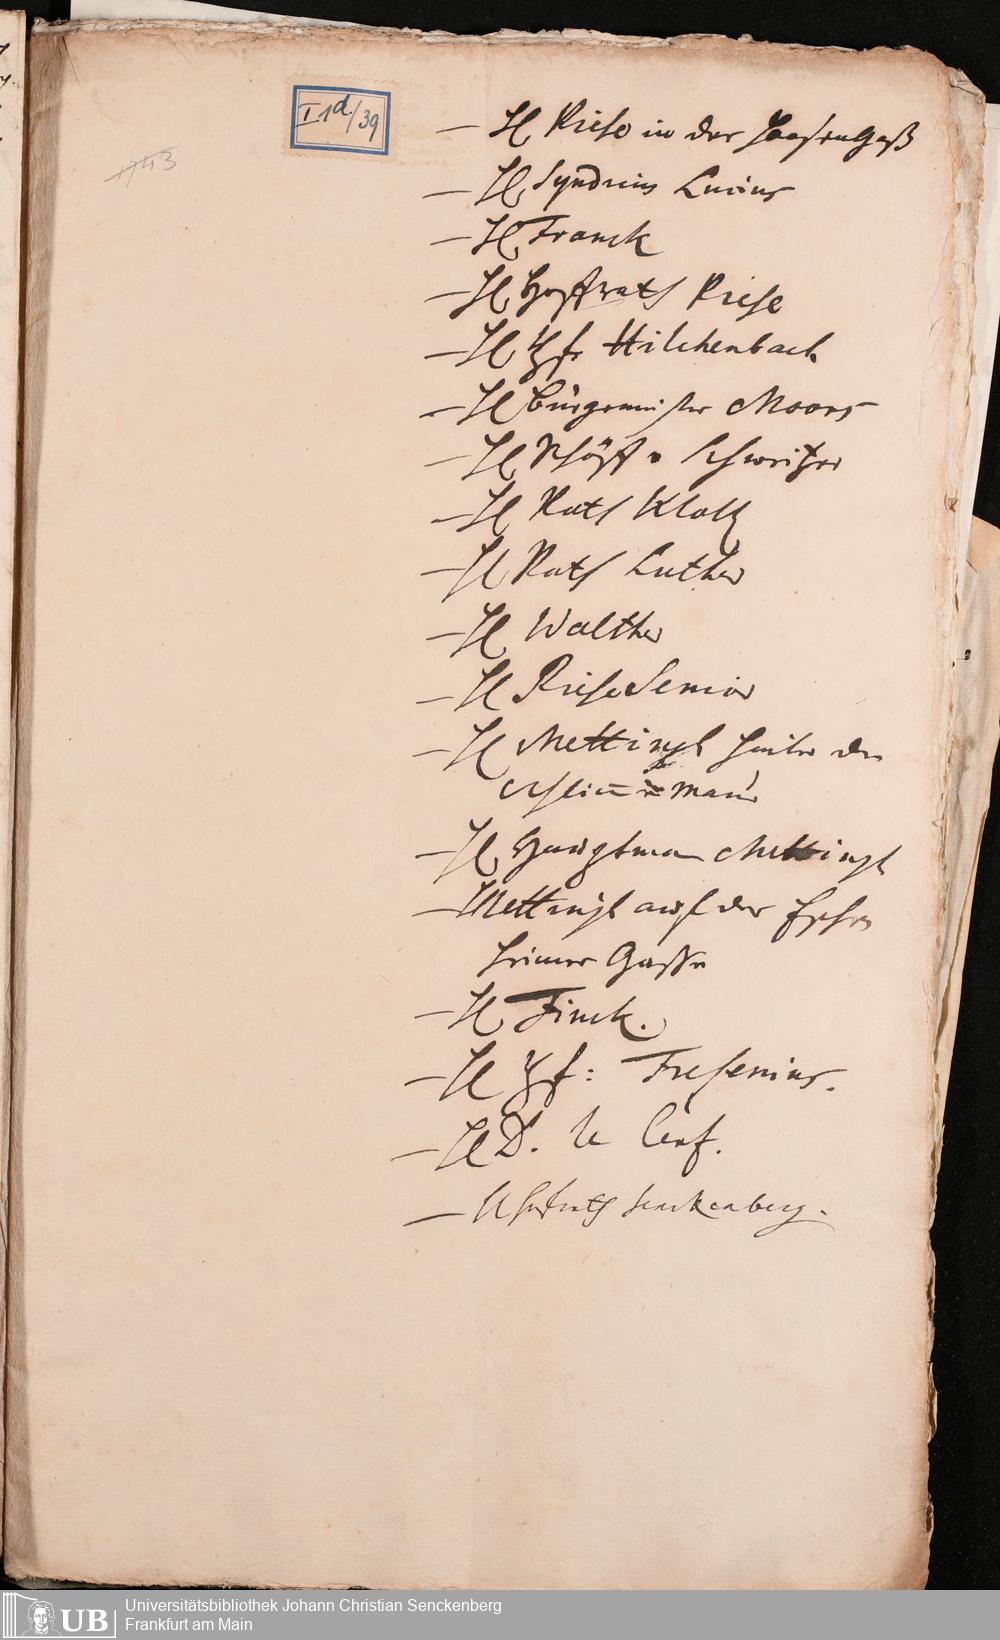 I 1d/39
143
— H Riese in der HaasenGaß
— H. Syndicus Lucius
— H. Franck
— H. Hoffrath Riese
— H. Pf. Hilchenbach
— H Bürgermeister Moors
— H. Schöff v Schweitzer
— H Rath Klotz
— H Rath Luther
— H. Walther
— H Riese Senior
— H Mettingh hinter der
Schlim Mauer
— H. Hauptman Mettingh
— Mettingh auf der
heimer Gasse
— H Finck.
— H Pf: Fresenius.
— H D. le Cerf.
— H Hofrath Senckenberg.
UB
Universitätsbibliothek Johann Christian Senckenberg
Frankfurt am Main